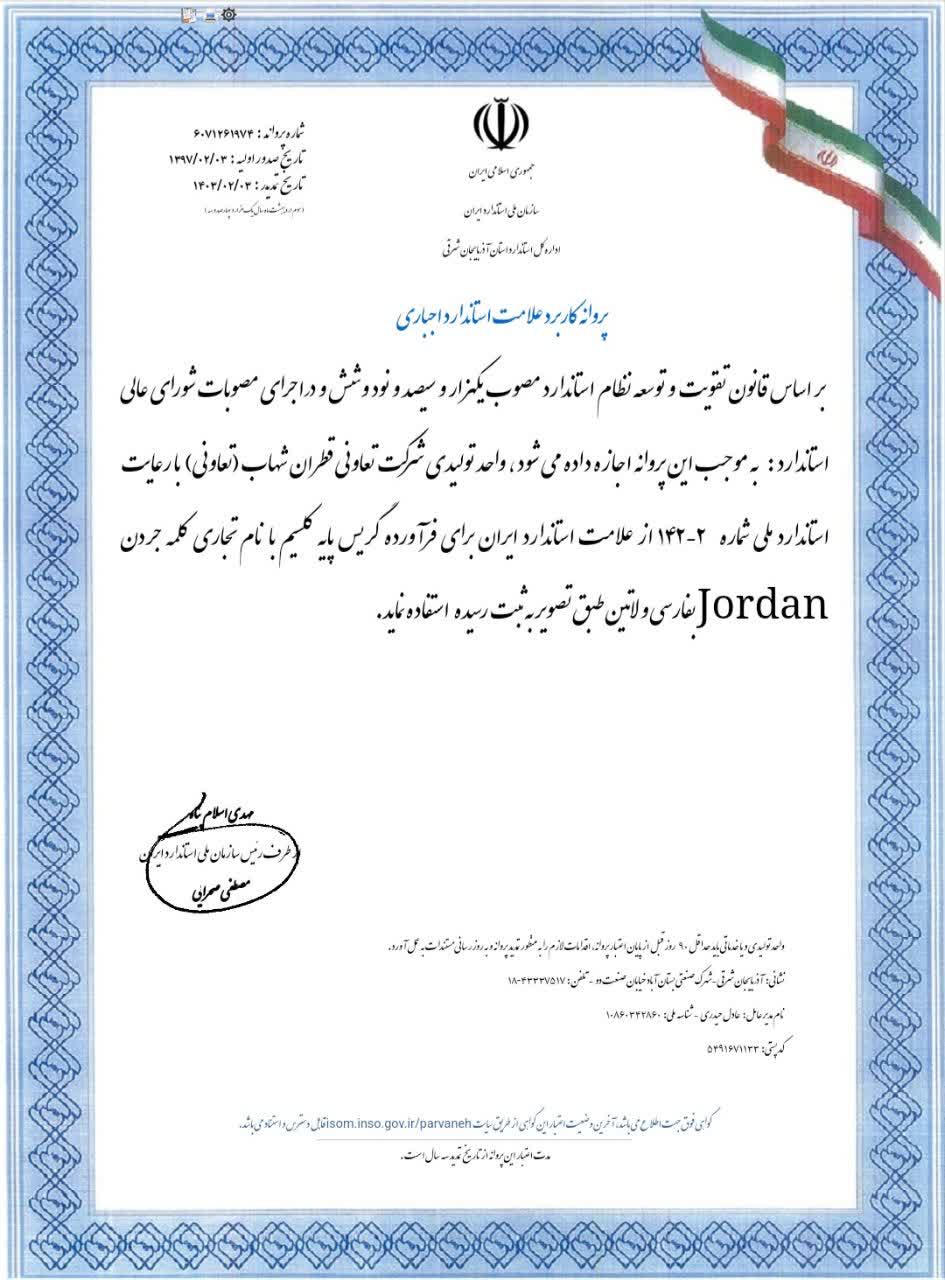 جمهوری اسلامی ایران
سازمان ملی استاندارد ایران
اداره کل استاندارد استان آذربایجان شرقی
شماره پروانه : ۶۰۷۱۲۶۱۹۷۴
تاریخ صدور اولیه : ۱۳۹۷/۰۲/۰۳
تاریخ تمدید : ۱۴۰۳/۰۲/۰۳
پروانه کاربرد علامت استاندارد اجباری
بر اساس قانون تقویت و توسعه نظام استاندارد مصوب یکهزار و سیصد و نود و شش و در اجرای مصوبات شورای عالی
استاندارد : به موجب این پروانه اجازه داده می شود ، واحد تولیدی شرکت تعاونی قطران شهاب (تعاونی) با رعایت
استاندارد ملی شماره ۲-۱۴۲ از علامت استاندارد ایران برای فرآورده گریس پایه کلسیم با نام تجاری کلمه جردن
Jordan بفارسی و لاتین طبق تصویر به ثبت رسیده استفاده نماید.
مهدی اسلام
از طرف رئیس سازمان ملی استاندارد ایران
مصطفی صحرایی
واحد تولیدی و یا خدماتی باید حداقل ۹۰ روز قبل از پایان اعتبار پروانه، اقدامات لازم را به منظور تمدید پروانه و به روز رسانی مستندات به عمل آورد.
نشانی: آذربایجان شرقی-شهرک صنعتی بستان آباد خیابان صنعت دو - تلفن: ۴۳۳۳۷۵۱۷-۱۸
نام مدیرعامل: عادل حیدری - شناسه ملی: ۱۰۸۶۰۳۴۲۸۶۰
کد پستی: ۵۴۹۱۶۷۱۱۳۳
گواهی فوق جهت اطلاع می باشد، آخرین وضعیت اعتبار این گواهی از طریق سایت isom.inso.gov.ir/parvaneh قابل دسترس و استناد می باشد.
مدت اعتبار این پروانه از تاریخ تمدید سه سال است.